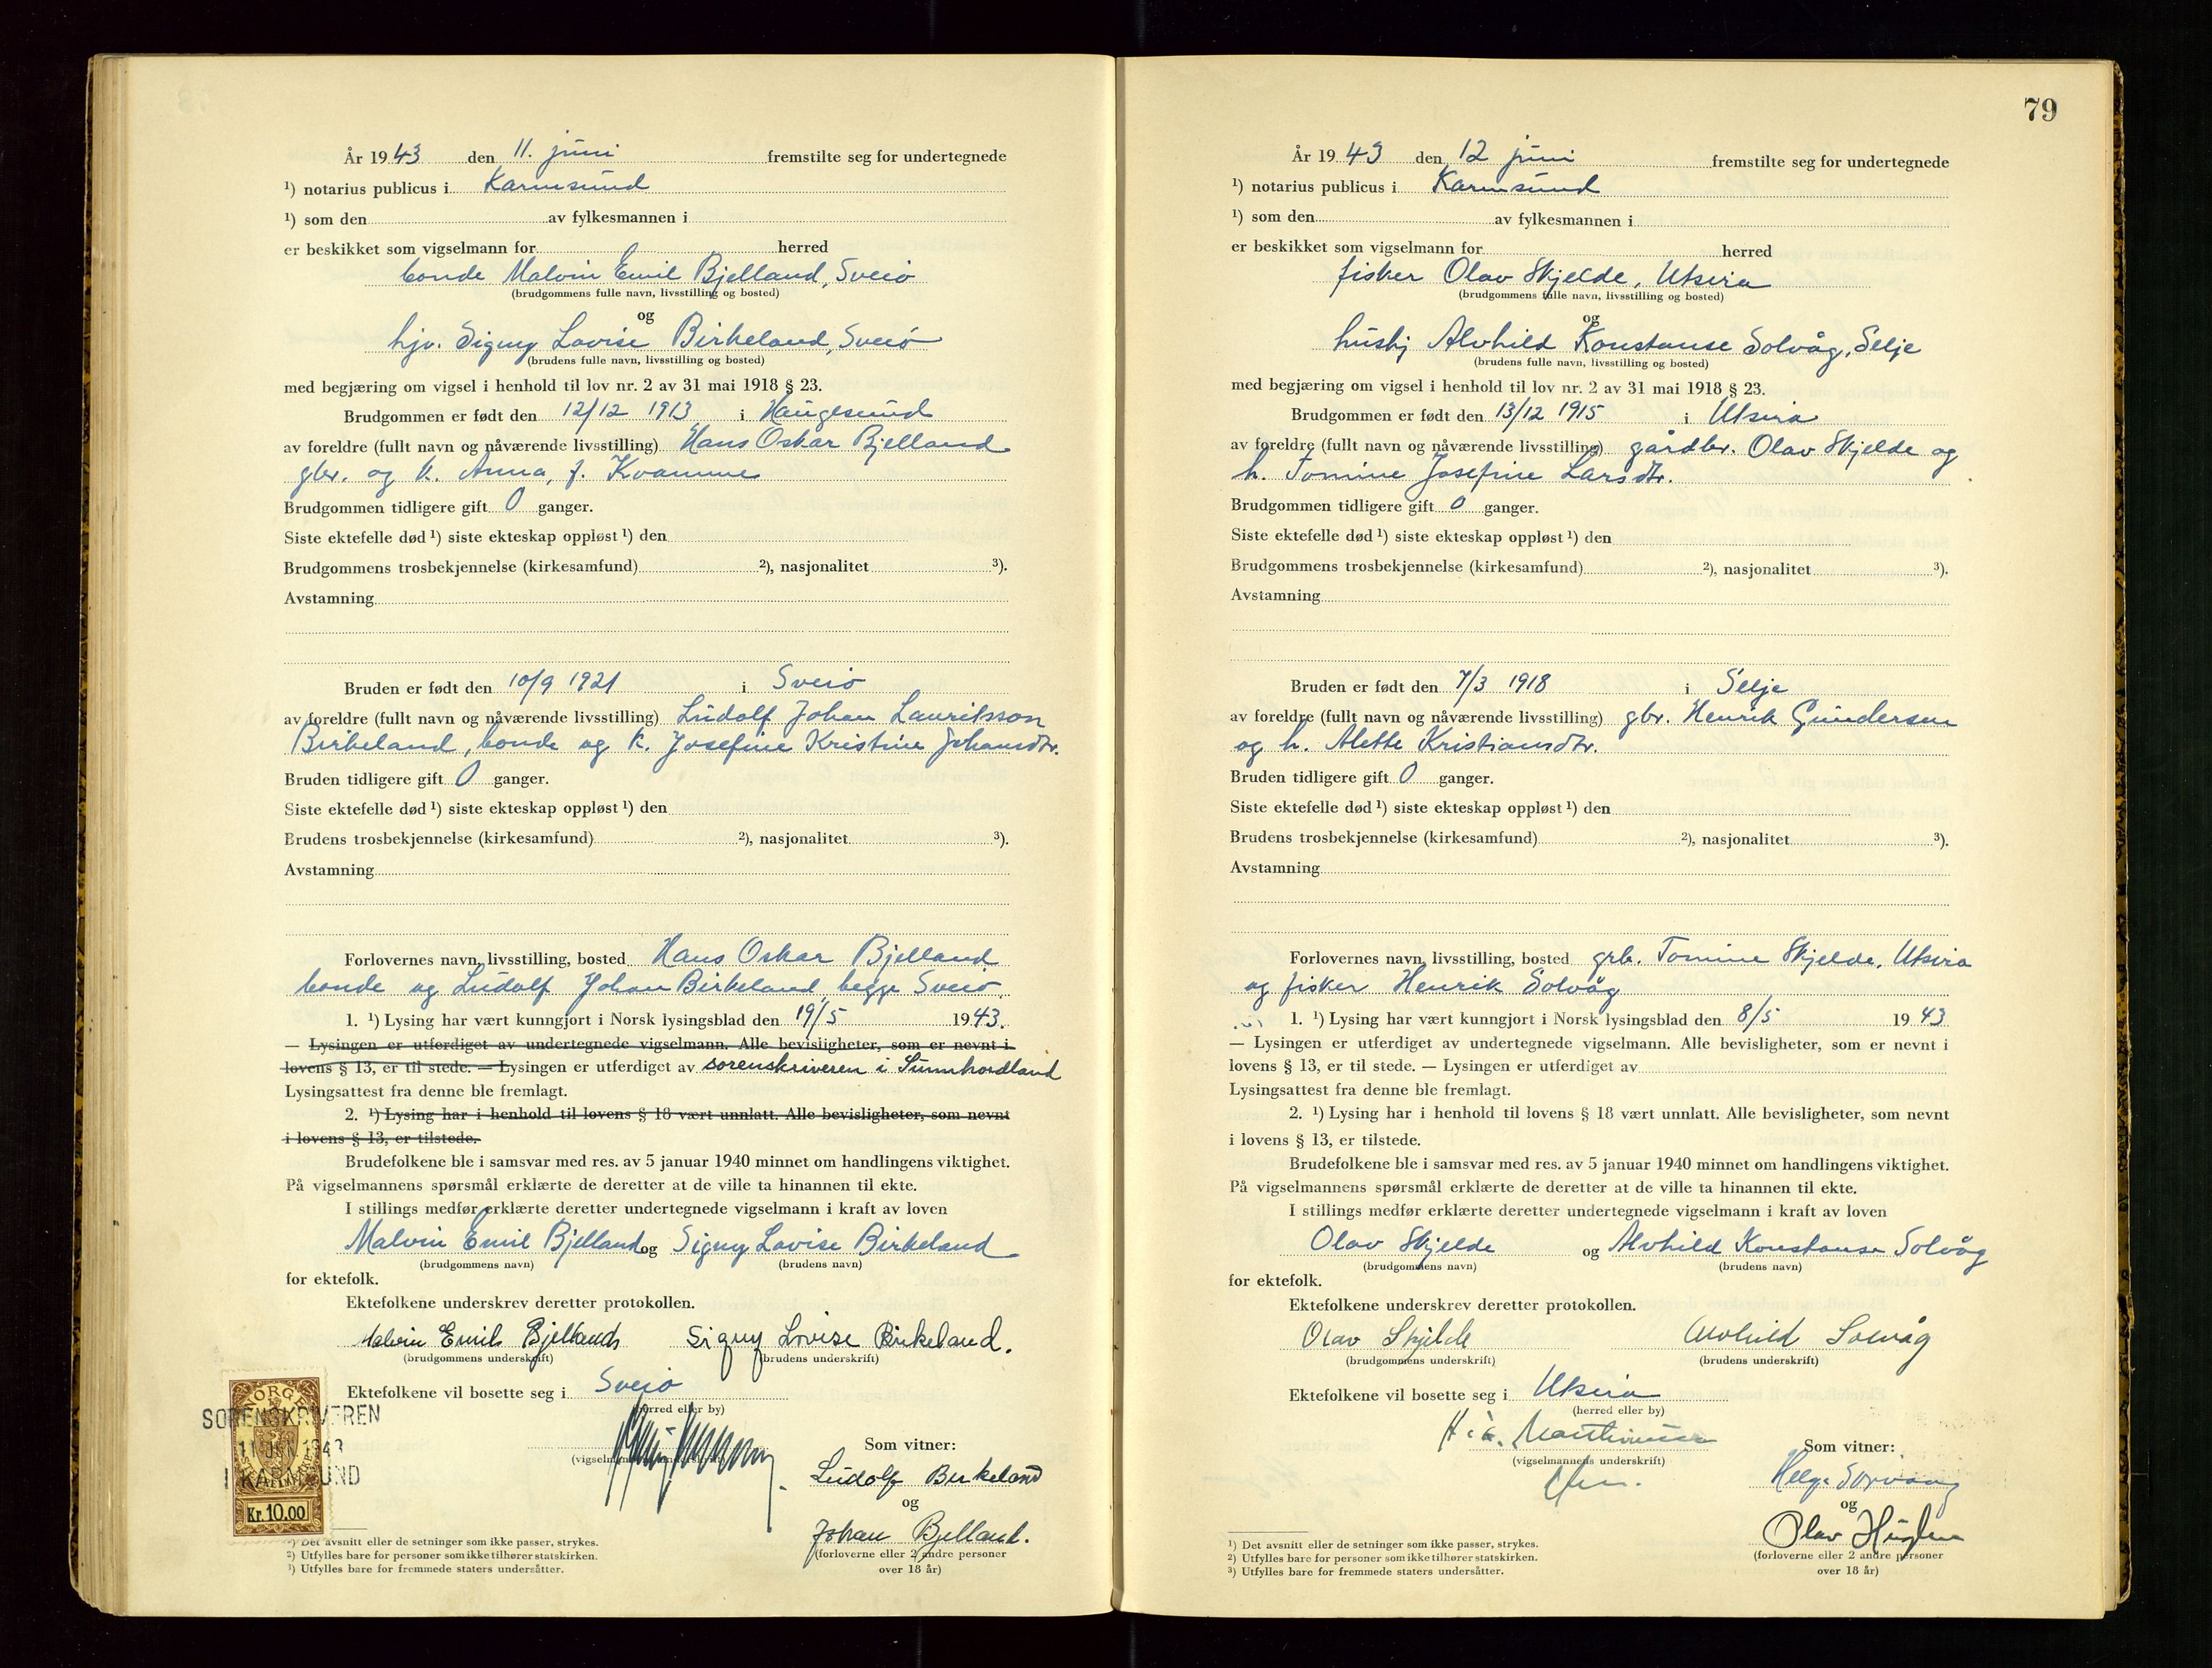 År 1943 den 11. juni fremstilte seg for undertegnede
¹) notarius publicus i Karmsund
¹) som den av fylkesmannen i
er beskikket som vigselmann for herred
bonde Malvin Emil Bjelland, Sveio
(brudgommens fulle navn, livsstilling og bosted)
og
hjv. Signy Lovise Birkeland, Sveio
(brudens fulle navn, livsstilling og bosted)
med begjæring om vigsel i henhold til lov nr. 2 av 31 mai 1918 § 23.
Brudgommen er født den 12/12 1913 i Haugesund
av foreldre (fullt navn og nåværende livsstilling) Hans Oskar Bjelland
gbr. og k. Anna, f. Kvamme
Brudgommen tidligere gift 0 ganger.
Siste ektefelle død ¹) siste ekteskap oppløst ¹) den
Brudgommens trosbekjennelse (kirkesamfund) ²), nasjonalitet ³).
Avstamning
Bruden er født den 10/9 1921 i Sveio
av foreldre (fullt navn og nåværende livsstilling) Ludolf Johan Lauritsson
Birkeland, bonde og k. Josefine Kristine Johansdtr.
Bruden tidligere gift 0 ganger.
Siste ektefelle død ¹) siste ekteskap oppløst ¹) den
Brudens trosbekjennelse (kirkesamfund) ²), nasjonalitet ³).
Avstamning
Forlovernes navn, livsstilling, bosted Hans Oskar Bjelland
bonde og Ludolf Johan Birkeland, begge Sveio.
1. ¹) Lysing har vært kunngjort i Norsk lysingsblad den 19/5 1943.
— Lysingen er utferdiget av undertegnede vigselmann. Alle bevisligheter, som er nevnt i
lovens § 13, er til stede. — Lysingen er utferdiget av sorenskriveren i Sunnhordland
Lysingsattest fra denne ble fremlagt.
2. ¹) Lysing har i henhold til lovens § 18 vært unnlatt. Alle bevisligheter, som nevnt
i lovens § 13, er tilstede.
Brudefolkene ble i samsvar med res. av 5 januar 1940 minnet om handlingens viktighet.
På vigselmannens spørsmål erklærte de deretter at de ville ta hinannen til ekte.
I stillings medfør erklærte deretter undertegnede vigselmann i kraft av loven
Malvin Emil Bjelland og Signy Lovise Birkeland
(brudgommens navn) (brudens navn)
for ektefolk.
Ektefolkene underskrev deretter protokollen.
Malvin Emil Bjelland Signy Lovise Birkeland.
(brudgommens underskrift) (brudens underskrift)
Ektefolkene vil bosette seg i Sveio
(herred eller by)
NORGE
SORENSKRIVEREN
11 JUN 1943
I KARMSUND
Kr. 10.00
Som vitner:
(vigselmannens underskrift)
Ludolf Birkeland
og
Johan Bjelland.
(forloverne eller 2 andre personer
over 18 år)
¹) Det avsnitt eller de setninger som ikke passer, strykes.
²) Utfylles bare for personer som ikke tilhører statskirken.
³) Utfylles bare for fremmede staters undersåtter.
79
År 1943 den 12 juni fremstilte seg for undertegnede
¹) notarius publicus i Karmsund
¹) som den av fylkesmannen i
er beskikket som vigselmann for herred
fisker Olav Skjelde, Utsira
(brudgommens fulle navn, livsstilling og bosted)
og
hushj Alvhild Konstanse Solvåg, Selje
(brudens fulle navn, livsstilling og bosted)
med begjæring om vigsel i henhold til lov nr. 2 av 31 mai 1918 § 23.
Brudgommen er født den 13/12 1915 i Utsira
av foreldre (fullt navn og nåværende livsstilling) gårdbr. Olav Skjelde og
h. Tomine Josefine Larsdtr.
Brudgommen tidligere gift 0 ganger.
Siste ektefelle død ¹) siste ekteskap oppløst ¹) den
Brudgommens trosbekjennelse (kirkesamfund) ²), nasjonalitet ³).
Avstamning
Bruden er født den 7/3 1918 i Selje
av foreldre (fullt navn og nåværende livsstilling) gbr. Henrik Gundersen
og h. Alette Kristiansdtr.
Bruden tidligere gift 0 ganger.
Siste ektefelle død ¹) siste ekteskap oppløst ¹) den
Brudens trosbekjennelse (kirkesamfund) ²), nasjonalitet ³).
Avstamning
Forlovernes navn, livsstilling, bosted grb. Tomine Skjelde, Utsira
og fisker Henrik Solvåg
1. ¹) Lysing har vært kunngjort i Norsk lysingsblad den 8/5 1943
— Lysingen er utferdiget av undertegnede vigselmann. Alle bevisligheter, som er nevnt i
lovens § 13, er til stede. — Lysingen er utferdiget av
Lysingsattest fra denne ble fremlagt.
2. ¹) Lysing har i henhold til lovens § 18 vært unnlatt. Alle bevisligheter, som nevnt
i lovens § 13, er tilstede.
Brudefolkene ble i samsvar med res. av 5 januar 1940 minnet om handlingens viktighet.
På vigselmannens spørsmål erklærte de deretter at de ville ta hinannen til ekte.
I stillings medfør erklærte deretter undertegnede vigselmann i kraft av loven
Olav Skjelde og Alvhild Konstanse Solvåg
(brudgommens navn) (brudens navn)
for ektefolk.
Ektefolkene underskrev deretter protokollen.
Olav Skjelde Alvhild Solvåg
(brudgommens underskrift) (brudens underskrift)
Ektefolkene vil bosette seg i Utsira
(herred eller by)
Som vitner:
(vigselmannens underskrift)
Helge
og
Olav
(forloverne eller 2 andre personer
over 18 år)
¹) Det avsnitt eller de setninger som ikke passer, strykes.
²) Utfylles bare for personer som ikke tilhører statskirken.
³) Utfylles bare for fremmede staters undersåtter.